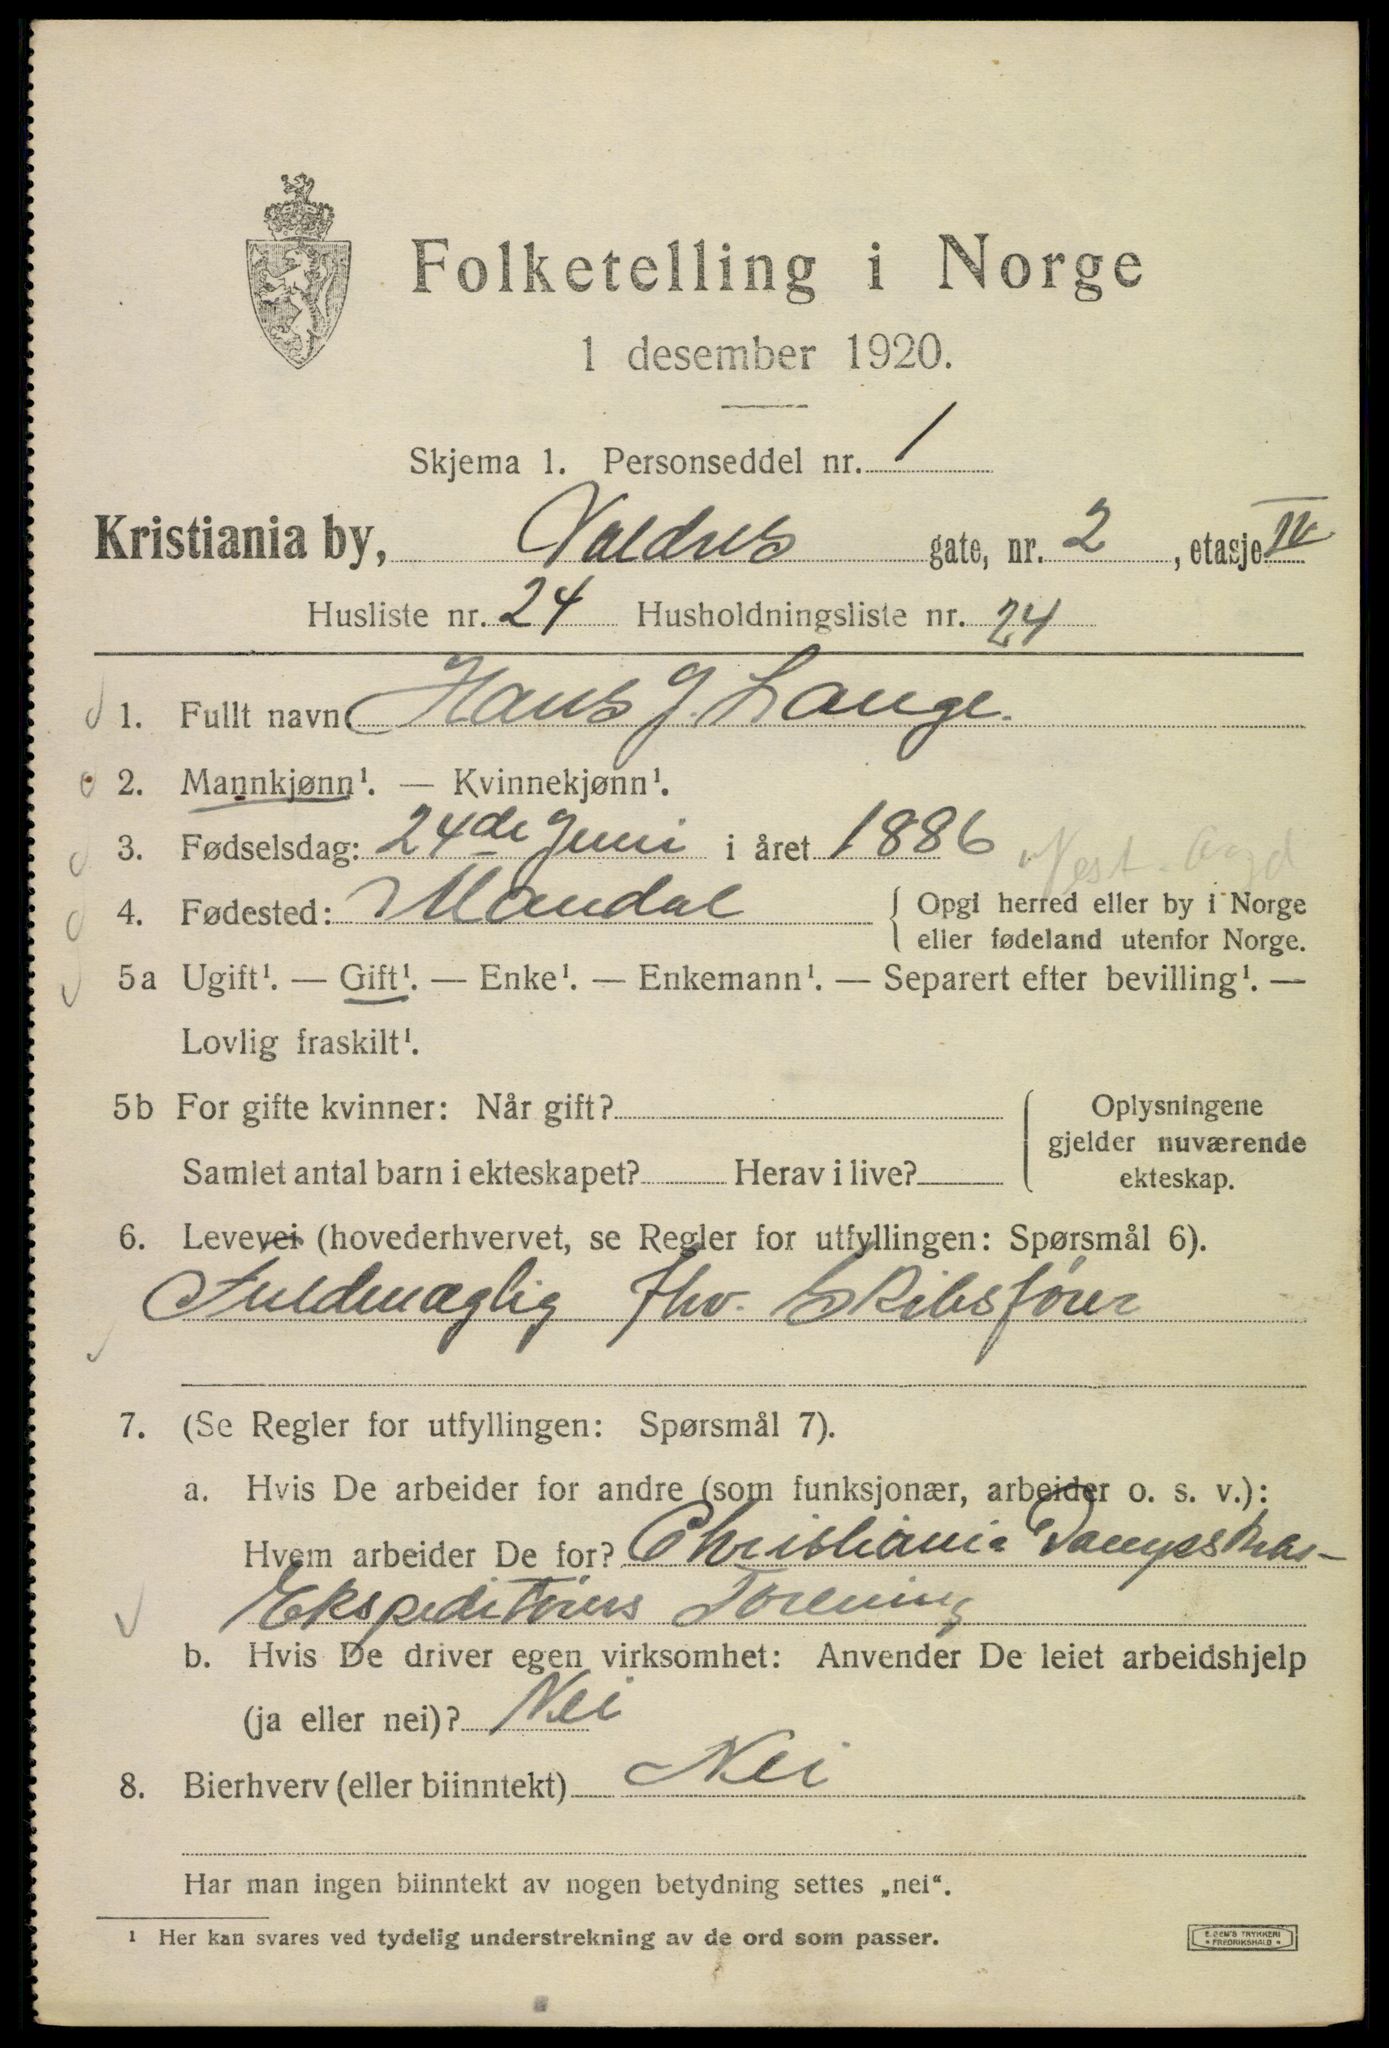 Folketelling i Norge
1 desember 1920.
Skjema 1. Personseddel nr. 1
Kristiania by, Valdres gate, nr. 2, etasje IV
Husliste nr. 24 Husholdningsliste nr. 24
1. Fullt navn Hans J. Lange.
2. Mannkjønn¹. — Kvinnekjønn¹.
3. Fødselsdag: 24de Juni i året 1886
Vest-Agd
4. Fødested: Mandal { Opgi herred eller by i Norge
eller fødeland utenfor Norge.
5a Ugift¹. — Gift¹. — Enke¹. — Enkemann¹. — Separert efter bevilling¹. —
Lovlig fraskilt¹.
5b For gifte kvinner: Når gift? { Oplysningene
gjelder nuværende
Samlet antal barn i ekteskapet? Herav i live? ekteskap.
6. Levevei (hovederhvervet, se Regler for utfyllingen: Spørsmål 6).
Fuldmægtig fhv. Skibsfører
7. (Se Regler for utfyllingen: Spørsmål 7).
a. Hvis De arbeider for andre (som funksjonær, arbeider o. s. v.):
Hvem arbeider De for? Christiania
Ekspeditørers Forening
b. Hvis De driver egen virksomhet: Anvender De leiet arbeidshjelp
(ja eller nei)? Nei
8. Bierhverv (eller biinntekt) Nei
Har man ingen biinntekt av nogen betydning settes „nei“.
¹ Her kan svares ved tydelig understrekning av de ord som passer.
E. SEM'S TRYKKERI
• FREDRIKSHALD •